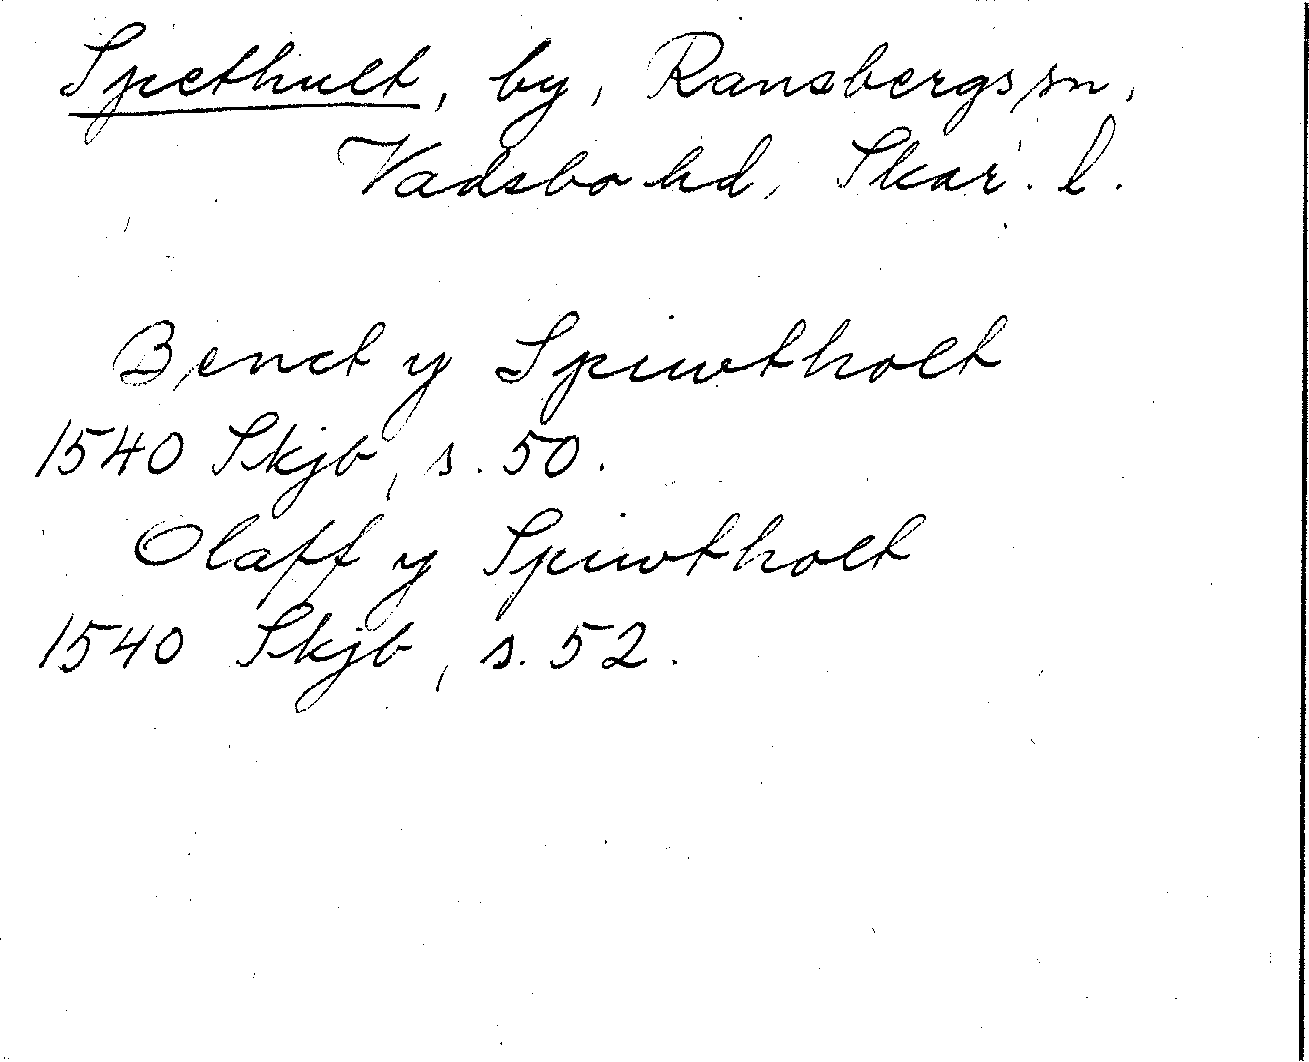 Spethult, by, Ransbergs sn,
Vadsbo hd, Skar. l.
Benct y Spiwtholt
1540 Skjb, s. 50.
Olaff y Spiwtholt
1540 Skjb, s. 52.